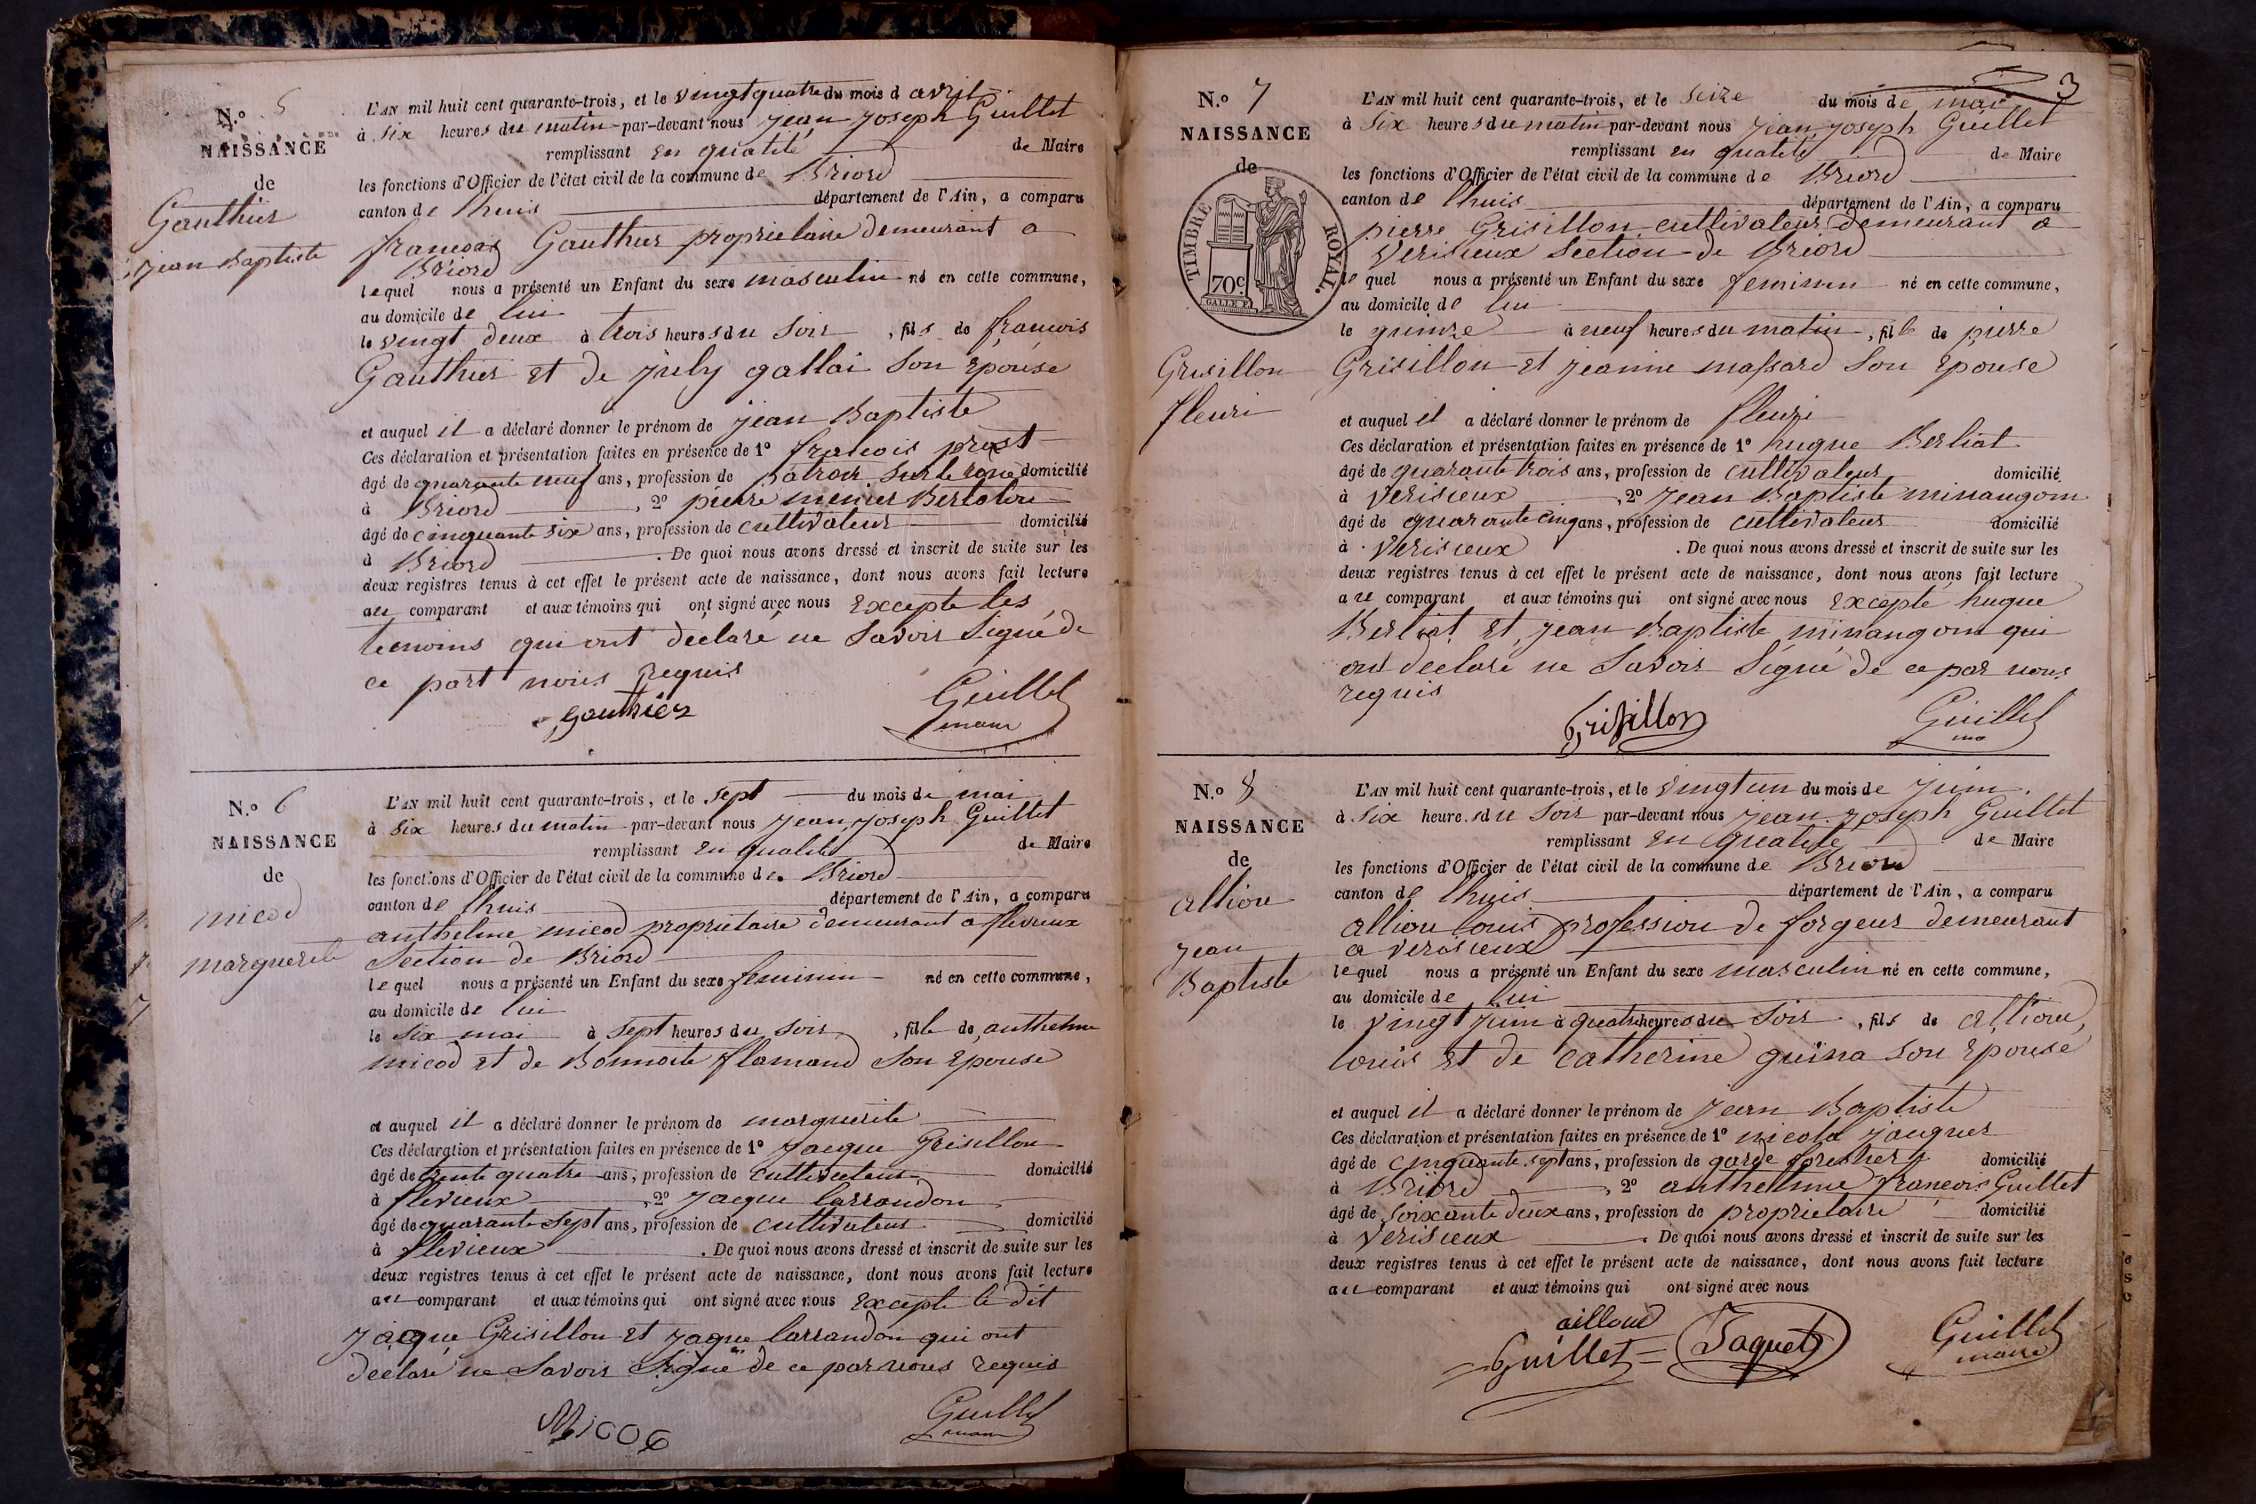 N.o 5
NAISSANCE
de
Gauthier
jean Baptiste
L'AN mil huit cent quarante-trois, et le vingt quatre du mois d avril
à six heures du matin par-devant nous jean joseph Guillet
remplissant en qualité de Maire
les fonctions d'Officier de l'état civil de la commune de Briord
canton de lhuis département de l'Ain, a comparu
francois Gauthier proprietaire demeurant a
Briord
lequel nous a présenté un Enfant du sexe masculin né en cette commune,
au domicile de lui
le vingt deux à trois heures du soir, fils de francois
Gauthier et de july gallai son epouse
et auquel il a déclaré donner le prénom de jean Baptiste
Ces déclaration et présentation faites en présence de 1o francois prost
âgé de quarante neuf ans, profession de patron sur le rone domicilié
à Briord, 2o pierre menier Bertolon
âgé de cinquante six ans, profession de cultivateur domicilié
à Briord. De quoi nous avons dressé et inscrit de suite sur les
deux registres tenus à cet effet le présent acte de naissance, dont nous avons fait lecture
au comparant et aux témoins qui ont signé avec nous excepte les
temoins qui ont déclaré ne savoir signé de
ce part nous requis
gauthier
Guillet
maire
N.o 6
NAISSANCE
de
micod
marguerite
L'AN mil huit cent quarante-trois, et le sept du mois de mai
à six heures du matin par-devant nous jean joseph Guillet
remplissant en qualité de Maire
les fonctions d'Officier de l'état civil de la commune de Briord
canton de lhuis département de l'Ain, a comparu
anthelme micod proprietaire demeurant a flevieux
section de Briord
lequel nous a présenté un Enfant du sexe feminin né en cette commune,
au domicile de lui
le six mai à sept heures du soir, fille de anthelme
micod et de Bonnoite flamand son epouse
et auquel il a déclaré donner le prénom de marguerite
Ces déclaration et présentation faites en présence de 1o jacque Grisillon
âgé de trente quatre ans, profession de cultivateur domicilié
à flevieux, 2o jacque larrandon
âgé de quarante sept ans, profession de cultivateur domicilié
à flevieux. De quoi nous avons dressé et inscrit de suite sur les
deux registres tenus à cet effet le présent acte de naissance, dont nous avons fait lecture
au comparant et aux témoins qui ont signé avec nous excepte le dit
jacque Grisillon et jaque larrandon qui ont
declaré ne savoir signé de ce par nous requis
Micod
Guillet
maire
3
N.o 7
NAISSANCE
de
TIMBRE ROYAL.
70c.
GALLE F.
Grisillon
fleuri
L'AN mil huit cent quarante-trois, et le seize du mois de mai
à six heures du matin par-devant nous jean joseph Guillet
remplissant en qualité de Maire
les fonctions d'Officier de l'état civil de la commune de Briord
canton de lhuis département de l'Ain, a comparu
pierre Grisillon cultivateur demeurant a
verisieux section de Briord
lequel nous a présenté un Enfant du sexe feminin né en cette commune,
au domicile de lui
le quinze à neuf heures du matin, fille de pierre
Grisillon et jeanne massard son epouse
et auquel il a déclaré donner le prénom de fleuri
Ces déclaration et présentation faites en présence de 1o hugue Berliat
âgé de quarante trois ans, profession de cultivateur domicilié
à verisieux, 2o jean Baptiste minangoin
âgé de quarante cinq ans, profession de cultivateur domicilié
à verisieux. De quoi nous avons dressé et inscrit de suite sur les
deux registres tenus à cet effet le présent acte de naissance, dont nous avons fait lecture
au comparant et aux témoins qui ont signé avec nous excepté hugue
Berliat et jean Baptiste minangoin qui
ont declaré ne savoir signé de ce par nous
requis
Grisillon
Guillet
N.o 8
NAISSANCE
de
alliou
jean
Baptiste
L'AN mil huit cent quarante-trois, et le vingt un du mois de juin
à six heures du soir par-devant nous jean joseph Guillet
remplissant en qualité de Maire
les fonctions d'Officier de l'état civil de la commune de Briord
canton de lhuis département de l'Ain, a comparu
alliou louis profession de forgeur demeurant
a verisieux
lequel nous a présenté un Enfant du sexe masculin né en cette commune,
au domicile de lui
le vingt juin à quatre heures du soir, fils de alliou
louis et de catherine guina son epouse
et auquel il a déclaré donner le prénom de jean Baptiste
Ces déclaration et présentation faites en présence de 1o nicola jaques
âgé de cinquante sept ans, profession de garde forestier domicilié
à Briord, 2o anthelme francois Guillet
âgé de soixante deux ans, profession de proprietaire domicilié
à verisieux. De quoi nous avons dressé et inscrit de suite sur les
deux registres tenus à cet effet le présent acte de naissance, dont nous avons fait lecture
au comparant et aux témoins qui ont signé avec nous
ailloud
Guillet
Jaquet
Guillet
maire